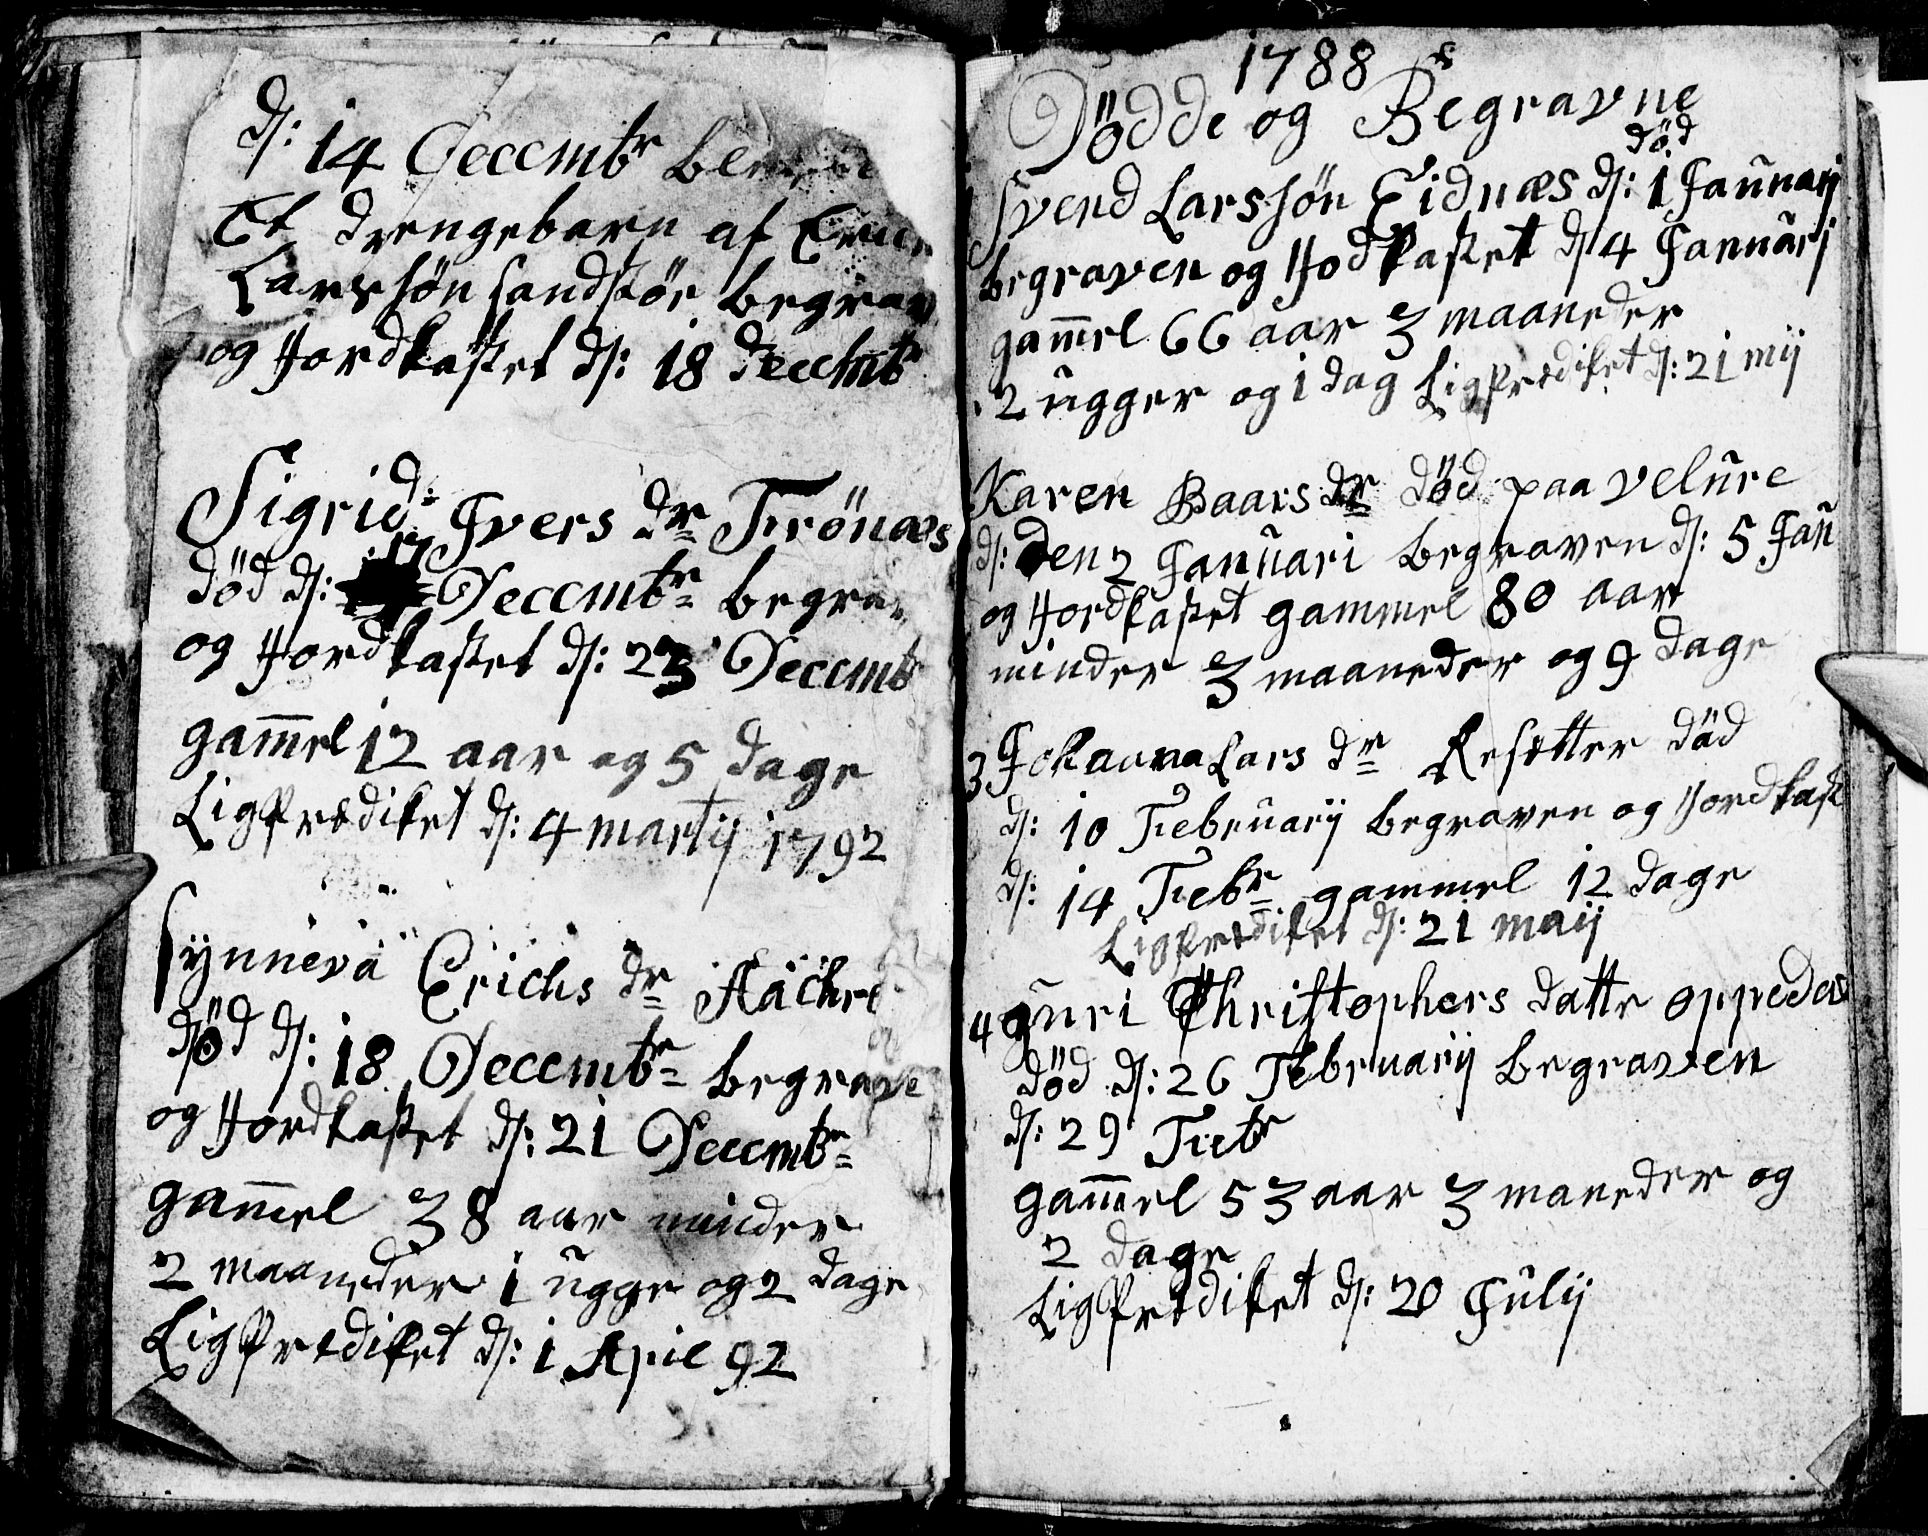 d: 14 Decembr
Et drengebarn af
Larssøn sandstør begrav
og Jordkastet d: 18 decembr
Sigrid Ivers dr Frønæs
død d: 17 Decembr begra
og Jordkastet d: 23 Decemb
gammel 12 aar og 5 dage
Ligprædiket d: 4 martij 1792
synneva Erichs dr Aachre
død d: 18 Decembr begrave
og Jordkastet d: 21 Decembr
gammel 38 aar minder
2 maaneder 1 ugge og 2 dage
Ligprædiket d: 1 Apil 92
1788
Dödde og Begravne
död
svend Larssön Eidnæs d: 1 Januarij
begraven og Jodkastet d 4 Januarj
gam̄el 66 aar 3 maaneder
2 ugger og 1 dag Ligprædiket d: 21 mij
Karen Baars dr död paa velure
d: den 2 Januari begraven d: 5 Jan
og Jordkastet gammel 80 aar
minder 3 maaneder og 9 dage
3 Johanna Lars dr Resetter död
d: 10 Februarij begraven og Jordkast
d: 14 Febr gammel 12 dage
Ligprædiket d: 21 maij
4 guri Christophers datter oppedal
död d: 26 Februarij begraven
d: 29 Febr
gam̄el 53 aar 3 maneder og
2 dage
Ligprædiket d: 20 Julij